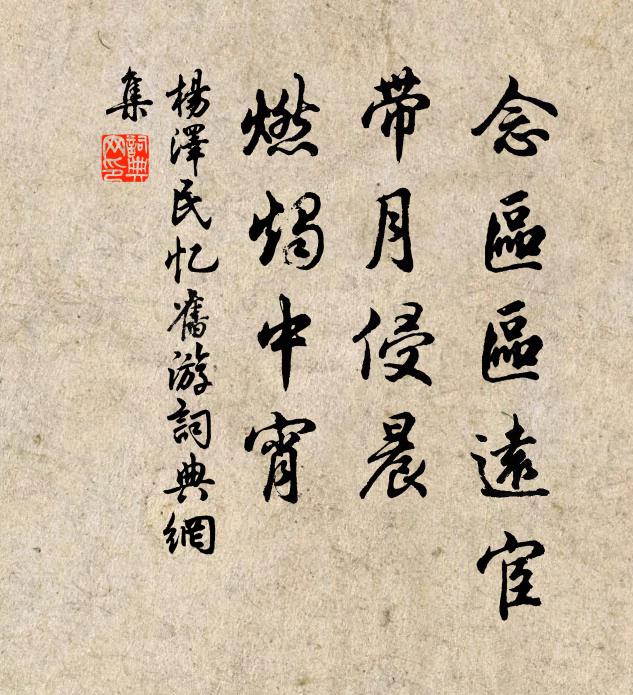 念區區遠宦
带月侵晨
燃燭中宵
楊澤民忆舊游詞典網
集
詞典
网印